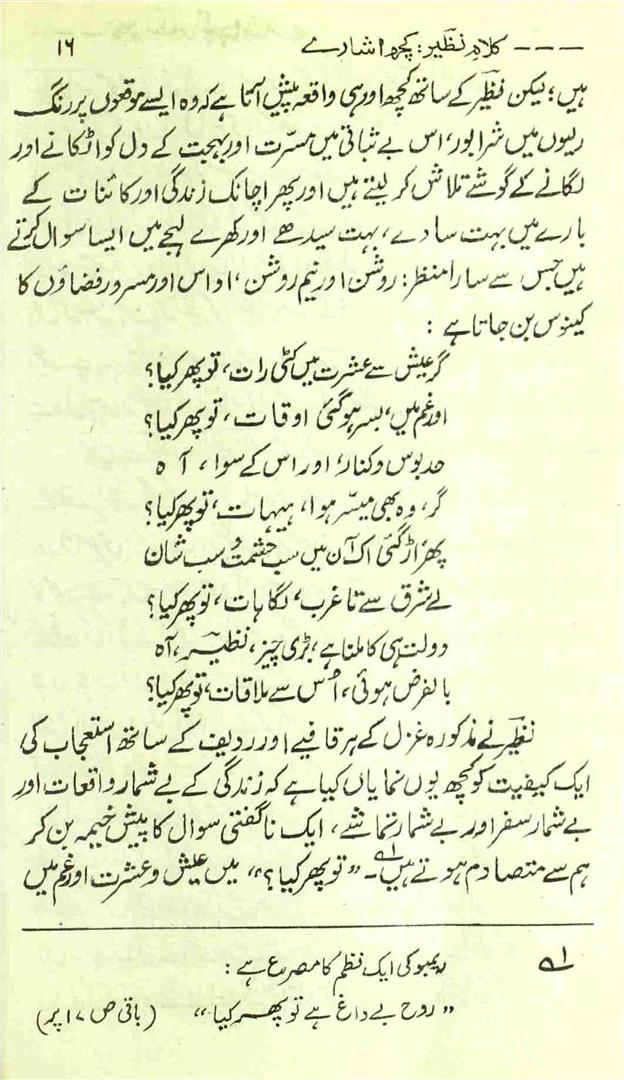 --- کلامِ نظیر: کچھ اشارے ۱۶
ہیں؛ لیکن نظیر کے ساتھ کچھ اور ہی واقعہ پیش آتا ہے کہ وہ ایسے موقعوں پر رنگ
ریوں میں شرابور، اس بے ثباتی میں مسرّت اور بہجت کے دل کو اٹکانے اور
لگانے کے گوشے تلاش کر لیتے ہیں اور پھر اچانک زندگی اور کائنات کے
بارے میں بہت سادے، بہت سیدھے اور کھرے لہجے میں ایسا سوال کرتے
ہیں جس سے سارا منظر: روشن اور نیم روشن، اداس اور مسرور فضاؤں کا
کینوس بن جاتا ہے :
گر عیش سے عشرت میں کٹی رات، تو پھر کیا؟
اور غم میں، بسر ہو گئی اوقات، تو پھر کیا؟
حد بوس و کنار، اور اس کے سوا، آہ
گر، وہ بھی میسّر ہوا، ہیہات، تو پھر کیا؟
پھر اڑ گئی اک آن میں سب حشمت و سب شان
لے شرق سے تا غرب، لگا ہات، تو پھر کیا؟
دولت ہی کا ملنا ہے، بڑی چیز، نظیر، آہ
بالفرض ہوئی، اُس سے ملاقات، تو پھر کیا؟
نظیر نے مذکورہ غزل کے ہر قافیے اور ردیف کے ساتھ استعجاب کی
ایک کیفیت کو کچھ یوں نمایاں کیا ہے کہ زندگی کے بے شمار واقعات اور
بے شمار سفر اور بے شمار تماشے، ایک ناگفتی سوال کا پیش خیمہ بن کر
ہم سے متصادم ہوتے ہیں۱؎۔ "تو پھر کیا؟" میں عیش و عشرت اور غم میں
۱؎ ریمبو کی ایک نظم کا مصرع ہے :
"روح بے داغ ہے تو پھر کیا" (باقی ص ۱۷ پر)